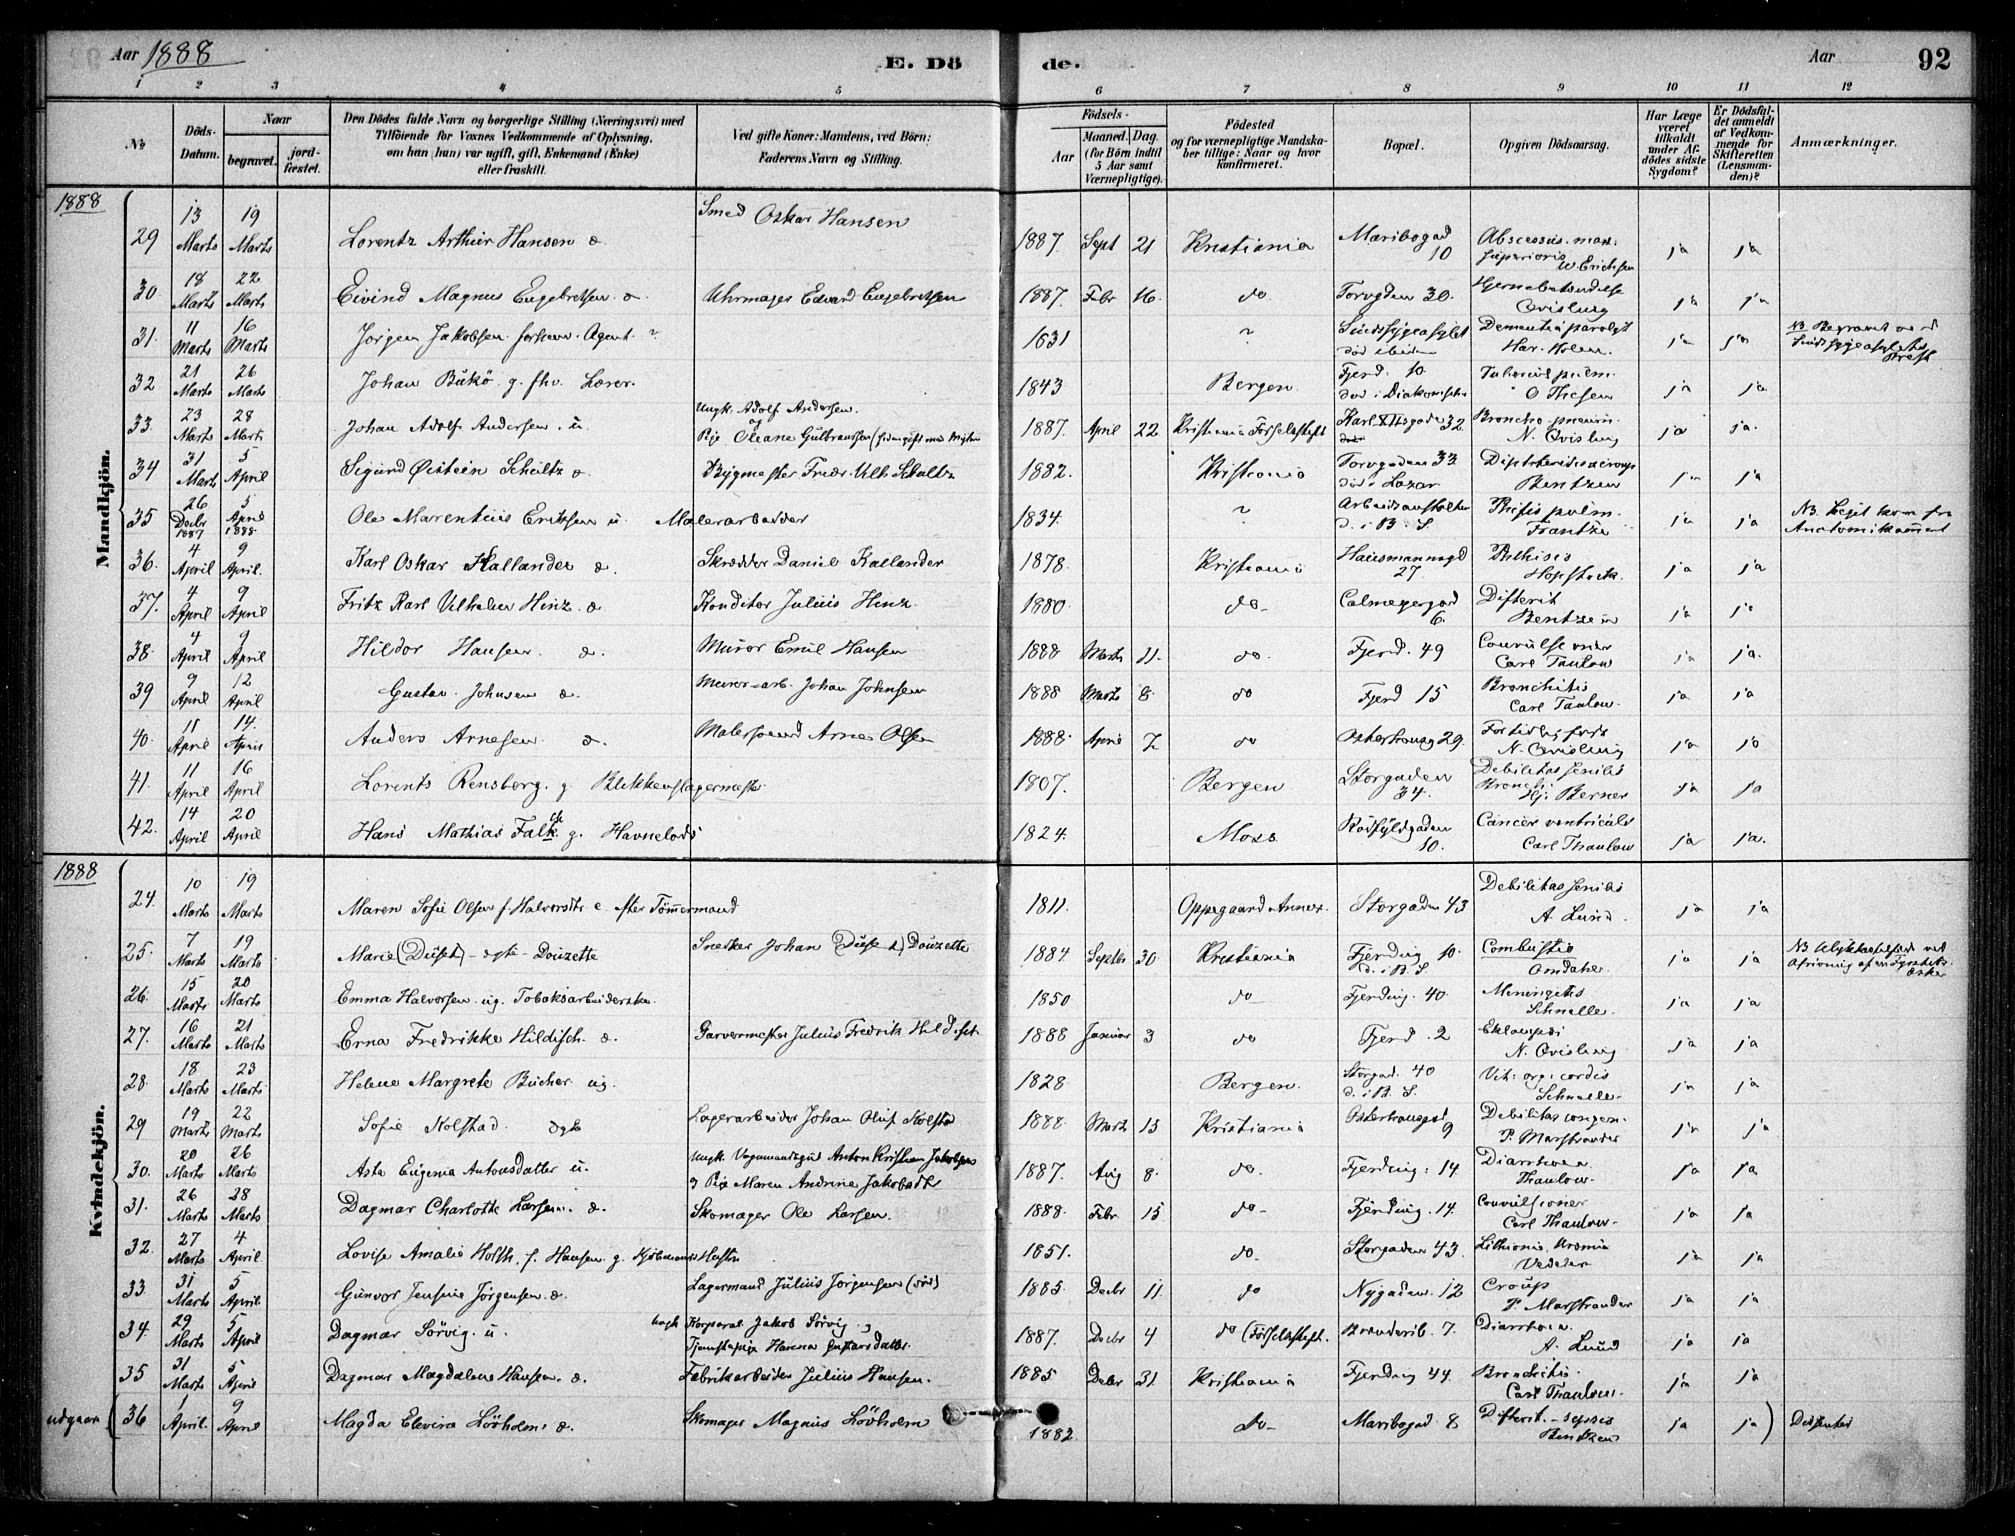 Aar 1888
E. Dö
de.
Aar
92
1 2 3 4 5 6 7 8 9 10 11 12
No
Döds-Datum.
Naar
begravet.
jordfæstet.
Den Dödes fulde Navn og borgerlige Stilling (Næringsvei) med
Tilföiende for Voxnes Vedkommende af Oplysning,
om han (hun) var ugift, gift, Enkemand (Enke)
eller fraskilt.
Ved gifte Koner: Mandens, ved Börn:
Faderens Navn og Stilling.
Födsels-
Aar
Maaned.
Dag.
(for Börn indtil
5 Aar samt
Værnepligtige).
Födested
og for værnepligtige Mandska-
ber tillige: Naar og hvor
konfirmeret.
Bopæl.
Opgiven Dödsaarsag.
Har Læge
været
tilkaldt
under Af-
dödes sidste
Sygdom?
Er Dödsfal-
det anmeldt
af Vedkom-
mende for
Skifteretten
(Lensman-
den)?
Anmærkninger.
Mandkjön.
1888
29 13 Marts 19 Marts Lorentz Arthur Hansen æ Smed Oskar Hansen 1887. Sept 21 Kristiania Maribogad 10 Abscessus max: superioris W Erichsen ja ja
30 18 Marts 22 Marts Eivind Magnus Engebretsen æ. Uhrmager Edvard Engebretsen 1887. Febr 16. do Torvgden 30. Hjernebetændelse Qvisling ja ja
31. 11 Marts 16 Marts Jörgen Jakobsen Agent ? 1831 ? Sindssygeasylet Har. Holm. ja ja NB Begravet
32 21 Marts 26 Marts Johan Bükö g. fhv. Lærer. 1843 Bergen Fjerd. 10. död i Diakonisseh O Thesen ja ja
33. 23 Marts 28 Marts Johan Adolf Andersen. u Ungk. Adolf Andersen. og Pige Oleane Gulbransen 1887. April 22 Kristiania Födselsstift Karl XIIsgade 32 Broncho pneum. N. Qvisling ja ja.
34 31 Marts 5 April Sigurd Öistein Schultz æ Bygmester Fredr. Vilh Schultz 1882. Kristiania Torvgaden 33. död i Lazar Bentzen ja ja
35 26 Decbr 1887 5 April 1888 Ole Marentius Eriksen u. Malerarbeider 1834. ? Arbeidsanstalten d. i B. S. Phtisis pulm. Frantze ja ja NB. Liget kom fra Anatomikammeret
36. 4 April 9 April. Karl Oskar Kallander æ. Skrædder Daniel Kallander 1878. Kristiania Hausmannsgd 27. Phthisis Hopstock. ja ja
37. 4 April 9 April Fritz Karl Vilhelm Hinz. æ Konditor Julius Hinz. 1880. do- Calmeyergad 6. Difterit Bentzen ja ja
38. 4 April 9 April Hildor Hansen æ. Murer Emil Hansen 1888 Marts 11. do. Fjerd. 49 Carl Thaulow ja ja.
39 9 April 12 April Gustav Johnsen æ. Murer-arb. Johan Johnsen 1888 Marts 8. do Fjerd 15 Bronchitis Carl Thaulow. ja ja
40. 11 April 14. April Anders Arnesen æ. Malersvend Arne Olsen 1888. April 7. do Osterhausg 29. For tidlig föds N. Qvisling ja ja
41. 11 April 16 April Lorents Rensberg. g Blikkenslagermester 1807. Bergen Storgaden 34. Debilitas senilis Bronch: Hj. Berner ja ja
42. 14 April 20 April Hans Mathias Falk g. Havnelods 1824. Moss Rödfyldgaden 10. Cancer ventriculi Carl Thaulow ja ja.
Kvindekjön.
1888
24. 10 Marts 19 Marts Maren Sofie Olsen f. Halvorsdtr e. efter Tömmermand 1811. Oppegaard Annex. Storgaden 43 Debilitas senilis A. Lund. ja ja
25. 7 Marts 19 Marts Marie (Düset) - ægte - Douzette Snedker Johan (Düset) Douzette 1884 Septbr 30. Kristiania Fjerding 10. d. i B. S Combustio Omdahl. ja ja NB Ulykkestilfæld ved Afrivning af en Fyrstiks. æsker
26. 15 Marts 20 Marts Emma Halvorsen ug. Tobaksarbeiderske. 1850 do- Fjerding. 40. Meningitis Schnelle. ja ja
27. 16 Marts 21 Marts Erna Fredrikke Hildisch. æ. Garvermester Julius Fredrik Hildisch. 1888 Januar 3 do Fjerd. 2 Eklampsi N. Qvisling ja ja
28. 18 Marts 23 Marts Helene Margrete Bücher. ug. 1828 Bergen. Storgad. 40 d. i B. S. Vit: org: cordis Schnelle- ja ja
29 19 Marts 22 Marts Sofie Kolstad ægte Lagerarbeider Johan Oluf Kolstad 1888. Marts 15 Kristiania Osterhausgd 9 Debilitas congen. P. Marstrander ja ja
30. 20 Marts 26 Marts Asta Eugenia Antonsdatter u. Ungk. Vognmandsgut Anton Kristian Jakobsen g Pige Maren Andrine Jakobsdtr 1887. Aug 8. do. Fjerding: 14 Diarrhoea. Thaulow. ja ja
31. 26 Marts 28 Marts Dagmar Charlotte Larsen. æ. Skomager Ole Larsen. 1888. Febr. 15 do- Fjerding. 14. Convulsioner Carl Thaulow. ja ja
32. 27 Marts 4 April Lovise Amalie Holth. f. Hansen g. Kjöbmand 1851. do. Storgaden 43. Uræmia Vedeler ja ja
33 31 Marts 5 April. Gunvor Jensine Jörgensen. æ. Lagermand Julius Jörgensen (död) 1885. Decbr 11. do Nygaden. 12 Croup P. Marstrander ja ja
34. 29 Marts 5 April Dagmar Sörvig. u. ungk Korporal Jakob Sörvig. g Tjenestepige Hanna Gustavsdatter. 1887. Decbr 4 do (Födselsstift. 7. Diarrhoea. A. Lund ja ja
35 31 Marts 5 April Dagmar Magdalene Hansen. æ. Fabrikarbeider Julius Hansen. 1885 Decbr 31. Kristiania Fjerding 44. Bronchitis. Carl Thaulow. ja ja
udgaar (36 1 April. 9 April Magda Elevira Lövholm. æ. Skomager Magnus Lövholm 1882. do- Maribogad. 8 Difterit. - sepsis Bentzen ja ja) Dissenter